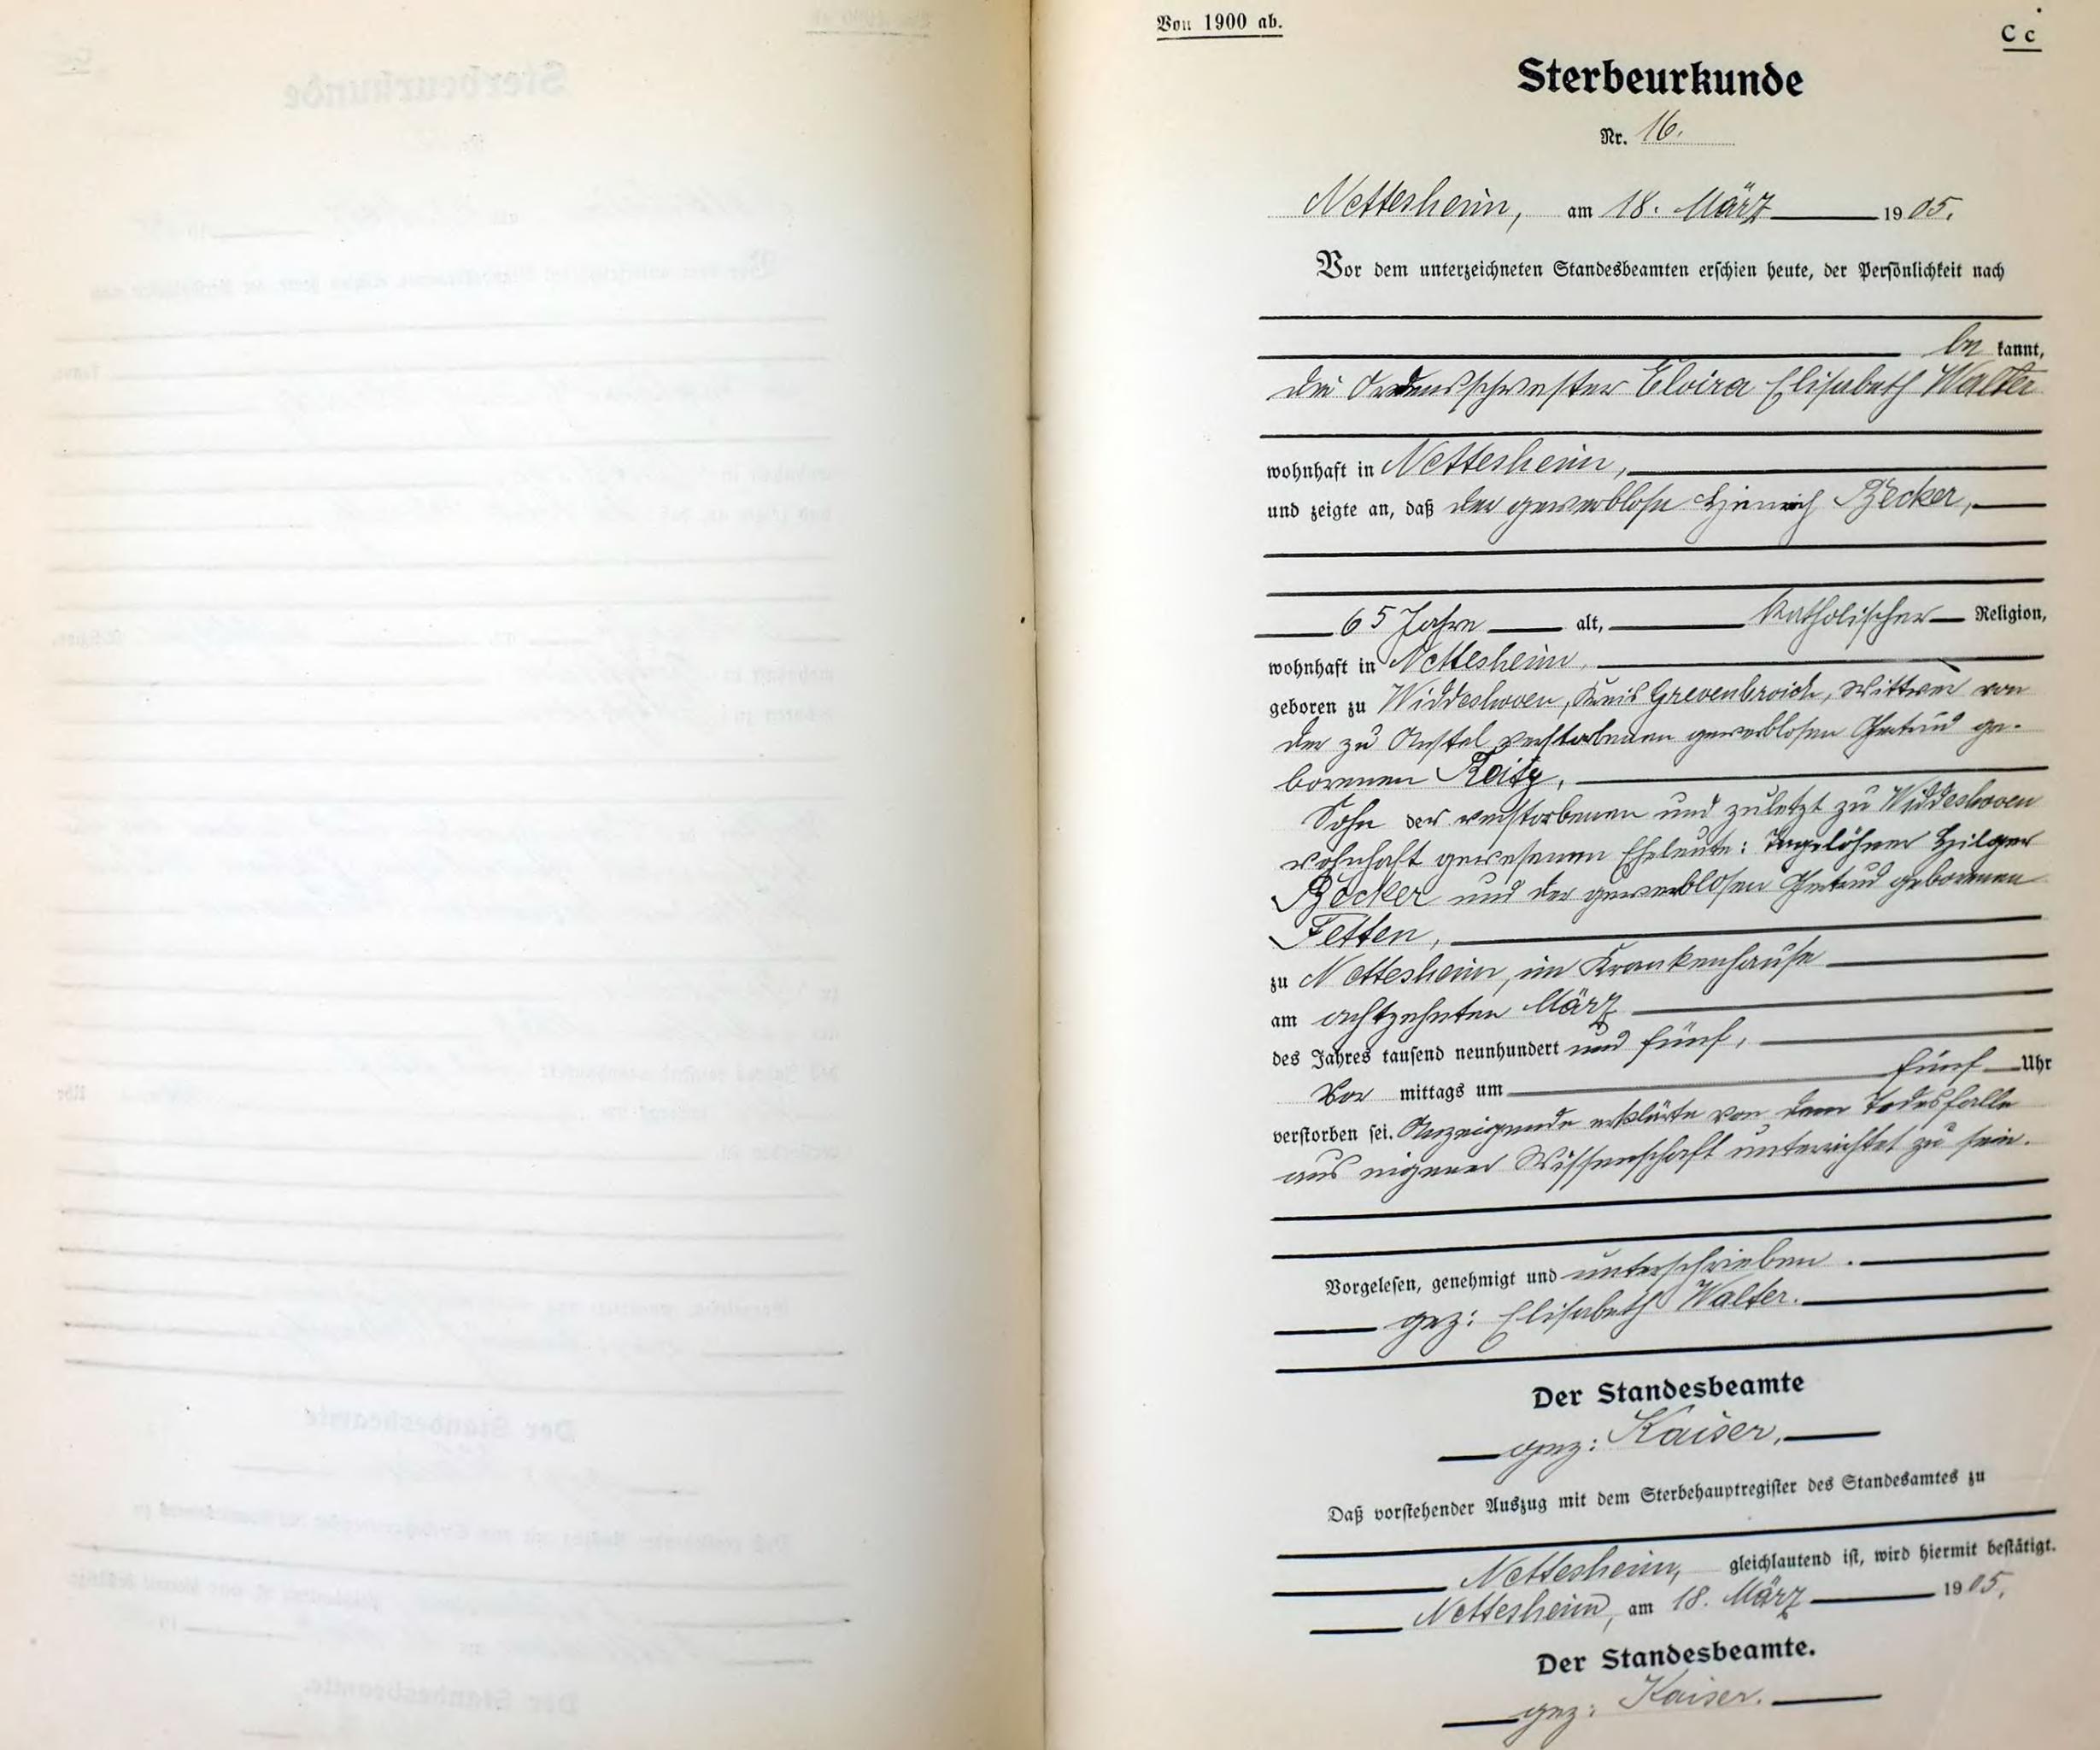 Von 1900 ab.
C c
Sterbeurkunde
Nr. 16.
Nettesheim, am 18. März 1905.
Vor dem unterzeichneten Standesbeamten erschien heute, der Persönlichkeit nach
be kannt,
die Ordensschwester Elvira Elisabeth Walter
wohnhaft in Nettesheim,
und zeigte an, daß der gewerblose Heinrich Becker,
65 Jahre alt, katholischer Religion,
wohnhaft in Nettesheim,
geboren zu Widdeshoven, Kreis Grevenbroich, Wittwer von
der zu Anstel verstorbenen gewerblosen Gertrud ge-
borenen Reitz,
Sohn der verstorbenen und zuletzt zu Widdeshoven
wohnhaft gewesenen Eheleute: Tagelöhner Hilger
Becker und der gewerblosen Gertrud geborenen
Fetten,
zu Nettesheim, im Krankenhause
am achtzehnten März
des Jahres tausend neunhundert und fünf,
Vor mittags um fünf Uhr
verstorben sei. Anzeigende erklärte von dem Todesfalle
aus eigener Wissenschaft unterrichtet zu sein.
Vorgelesen, genehmigt und unterschrieben.
gez: Elisabeth Walter.
Der Standesbeamte
gez: Kaiser.
Daß vorstehender Auszug mit dem Sterbehauptregister des Standesamtes zu
Nettesheim, gleichlautend ist, wird hiermit bestätigt.
Nettesheim, am 18. März 1905.
Der Standesbeamte.
gez: Kaiser.